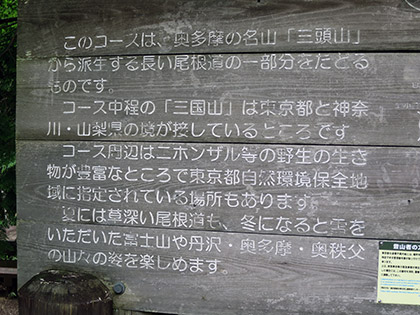 このコースは、奥多摩の名山「三頭山」
から派生する長い尾根道の一部分をたどる
ものです。
コース中程の「三国山」は東京都と神奈
川・山梨県の境が接しているところです
コース周辺はニホンザル等の野生の生き
物が豊富なところで東京都自然環境保全地
域に指定されている場所もあります。
夏には草深い尾根道も、冬になると雪を
いただいた富士山や丹沢・奥多摩・奥秩父
の山々の姿を楽しめます。